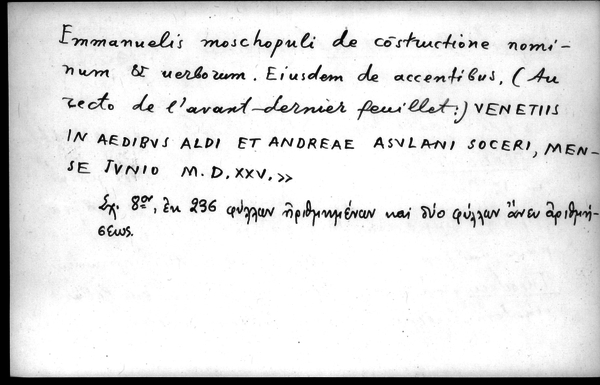 Emmanuelis moschopuli de cōstructione nomi-
num & uerborum. Eiusdem de accentibus, (Au
recto de l'avant-dernier feuillet:) VENETIIS
IN AEDIBVS ALDI ET ANDREAE ASVLANI SOCERI, MEN-
SE IVNIO M.D.XXV.»
Σχ. 8ον, ἐκ 236 φύλλων ἠριθμημένων καὶ δύο φύλλων ἄνευ ἀριθμή-
σεως.